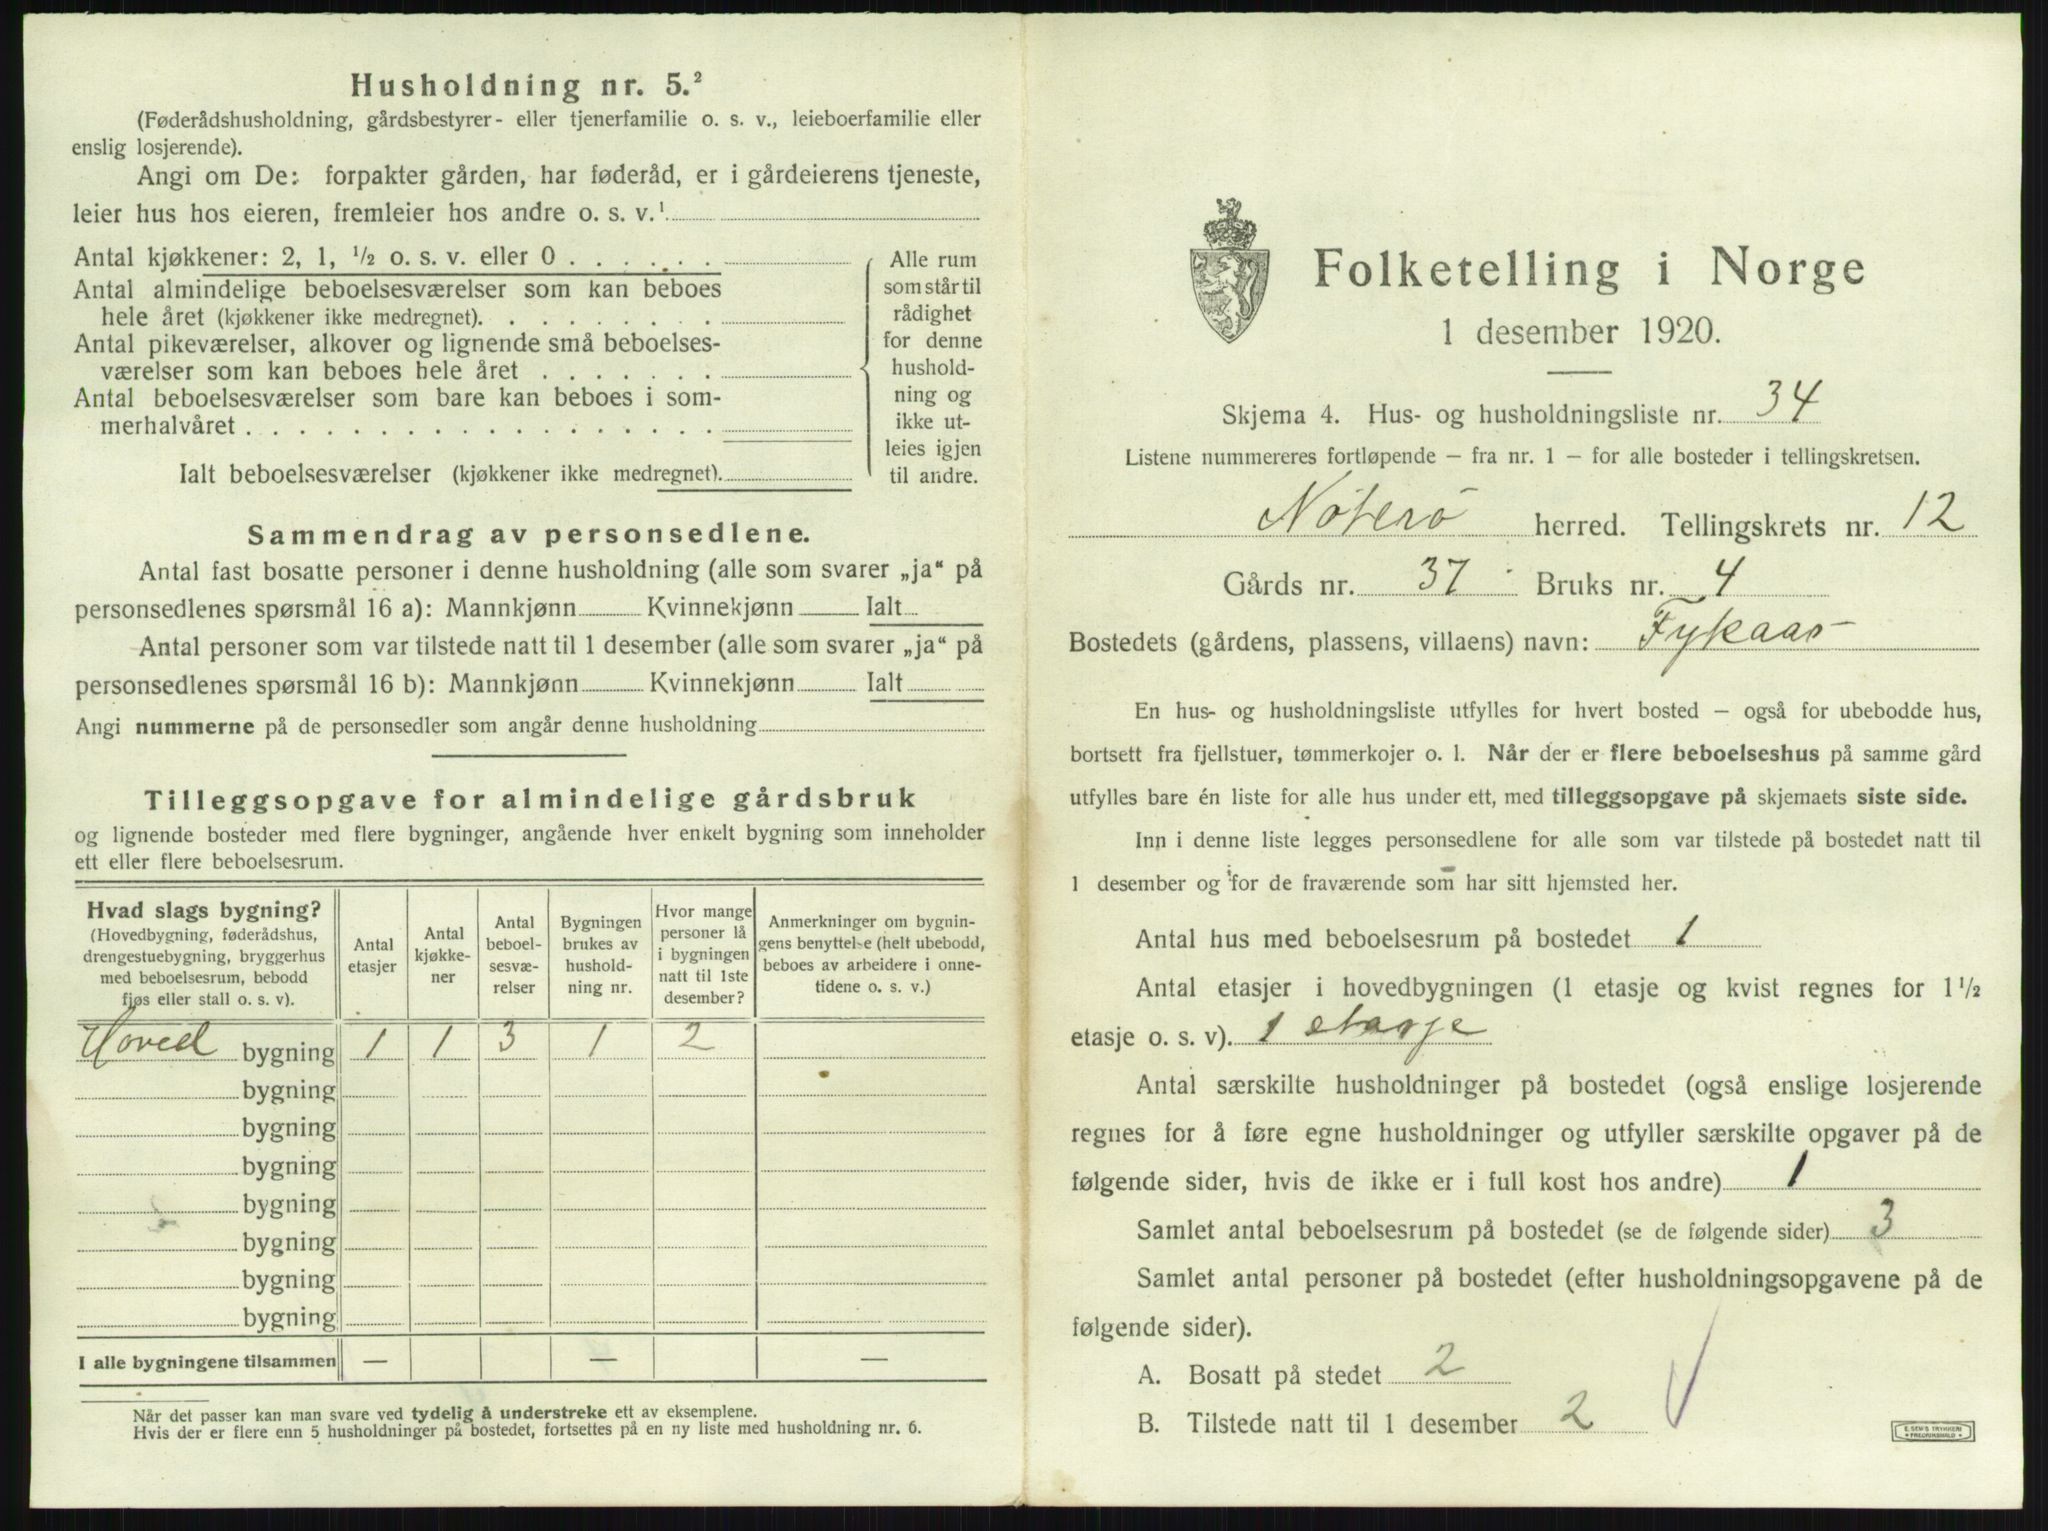 Husholdning nr. 5.²
(Føderådshusholdning, gårdsbestyrer- eller tjenerfamilie o. s. v., leieboerfamilie eller
enslig losjerende).
Angi om De: forpakter gården, har føderåd, er i gårdeierens tjeneste,
leier hus hos eieren, fremleier hos andre o. s. v.¹
Antal kjøkkener: 2, 1, ½ o. s. v. eller 0 . . . . . .
Antal almindelige beboelsesværelser som kan beboes
hele året (kjøkkener ikke medregnet). . . . . . . . .
Antal pikeværelser, alkover og lignende små beboelses-
værelser som kan beboes hele året . . . . . . .
Antal beboelsesværelser som bare kan beboes i som-
merhalvåret . . . . . . . . . . . . . . . . . .
Ialt beboelsesværelser (kjøkkener ikke medregnet).
Alle rum
som står til
rådighet
for denne
hushold-
ning og
ikke ut-
leies igjen
til andre.
Sammendrag av personsedlene.
Antal fast bosatte personer i denne husholdning (alle som svarer „ja“ på
personsedlenes spørsmål 16 a): Mannkjønn Kvinnekjønn Ialt
Antal personer som var tilstede natt til 1 desember (alle som svarer „ja“ på
personsedlenes spørsmål 16 b): Mannkjønn Kvinnekjønn Ialt
Angi nummerne på de personsedler som angår denne husholdning
Tilleggsopgave for almindelige gårdsbruk
og lignende bosteder med flere bygninger, angående hver enkelt bygning som inneholder
ett eller flere beboelsesrum.
Hvad slags bygning?
(Hovedbygning, føderådshus,
drengestuebygning, bryggerhus
med beboelsesrum, bebodd
fjøs eller stall o. s. v).
Antal
etasjer
Antal
kjøkke-
ner
Antal
beboel-
sesvæ-
relser
Bygningen
brukes av
hushold-
ning nr.
Hvor mange
personer lå
i bygningen
natt til 1ste
desember?
Anmerkninger om bygnin-
gens benyttelse (helt ubebodd,
beboes av arbeidere i onne-
tidene o. s. v.)
Hoved bygning 1 1 3 1 2
bygning
bygning
bygning
bygning
bygning
bygning
bygning
I alle bygningene tilsammen — — —
Når det passer kan man svare ved tydelig å understreke ett av eksemplene.
Hvis der er flere enn 5 husholdninger på bostedet, fortsettes på en ny liste med husholdning nr. 6.
Folketelling i Norge
1 desember 1920.
Skjema 4. Hus- og husholdningsliste nr. 34
Listene nummereres fortløpende – fra nr. 1 – for alle bosteder i tellingskretsen.
Nøterö herred. Tellingskrets nr. 12
Gårds nr. 37 Bruks nr. 4
Bostedets (gårdens, plassens, villaens) navn: Fykaas
En hus- og husholdningsliste utfylles for hvert bosted – også for ubebodde hus,
bortsett fra fjellstuer, tømmerkojer o. l. Når der er flere beboelseshus på samme gård
utfylles bare én liste for alle hus under ett, med tilleggsopgave på skjemaets siste side.
Inn i denne liste legges personsedlene for alle som var tilstede på bostedet natt til
1 desember og for de fraværende som har sitt hjemsted her.
Antal hus med beboelsesrum på bostedet 1
Antal etasjer i hovedbygningen (1 etasje og kvist regnes for 1½
etasje o. s. v). 1 etasje
Antal særskilte husholdninger på bostedet (også enslige losjerende
regnes for å føre egne husholdninger og utfyller særskilte opgaver på de
følgende sider, hvis de ikke er i full kost hos andre) 1
Samlet antal beboelsesrum på bostedet (se de følgende sider) 3
Samlet antal personer på bostedet (efter husholdningsopgavene på de
følgende sider).
A. Bosatt på stedet 2
B. Tilstede natt til 1 desember 2
E. SEM'S TRYKKERI
FREDRIKSHALD